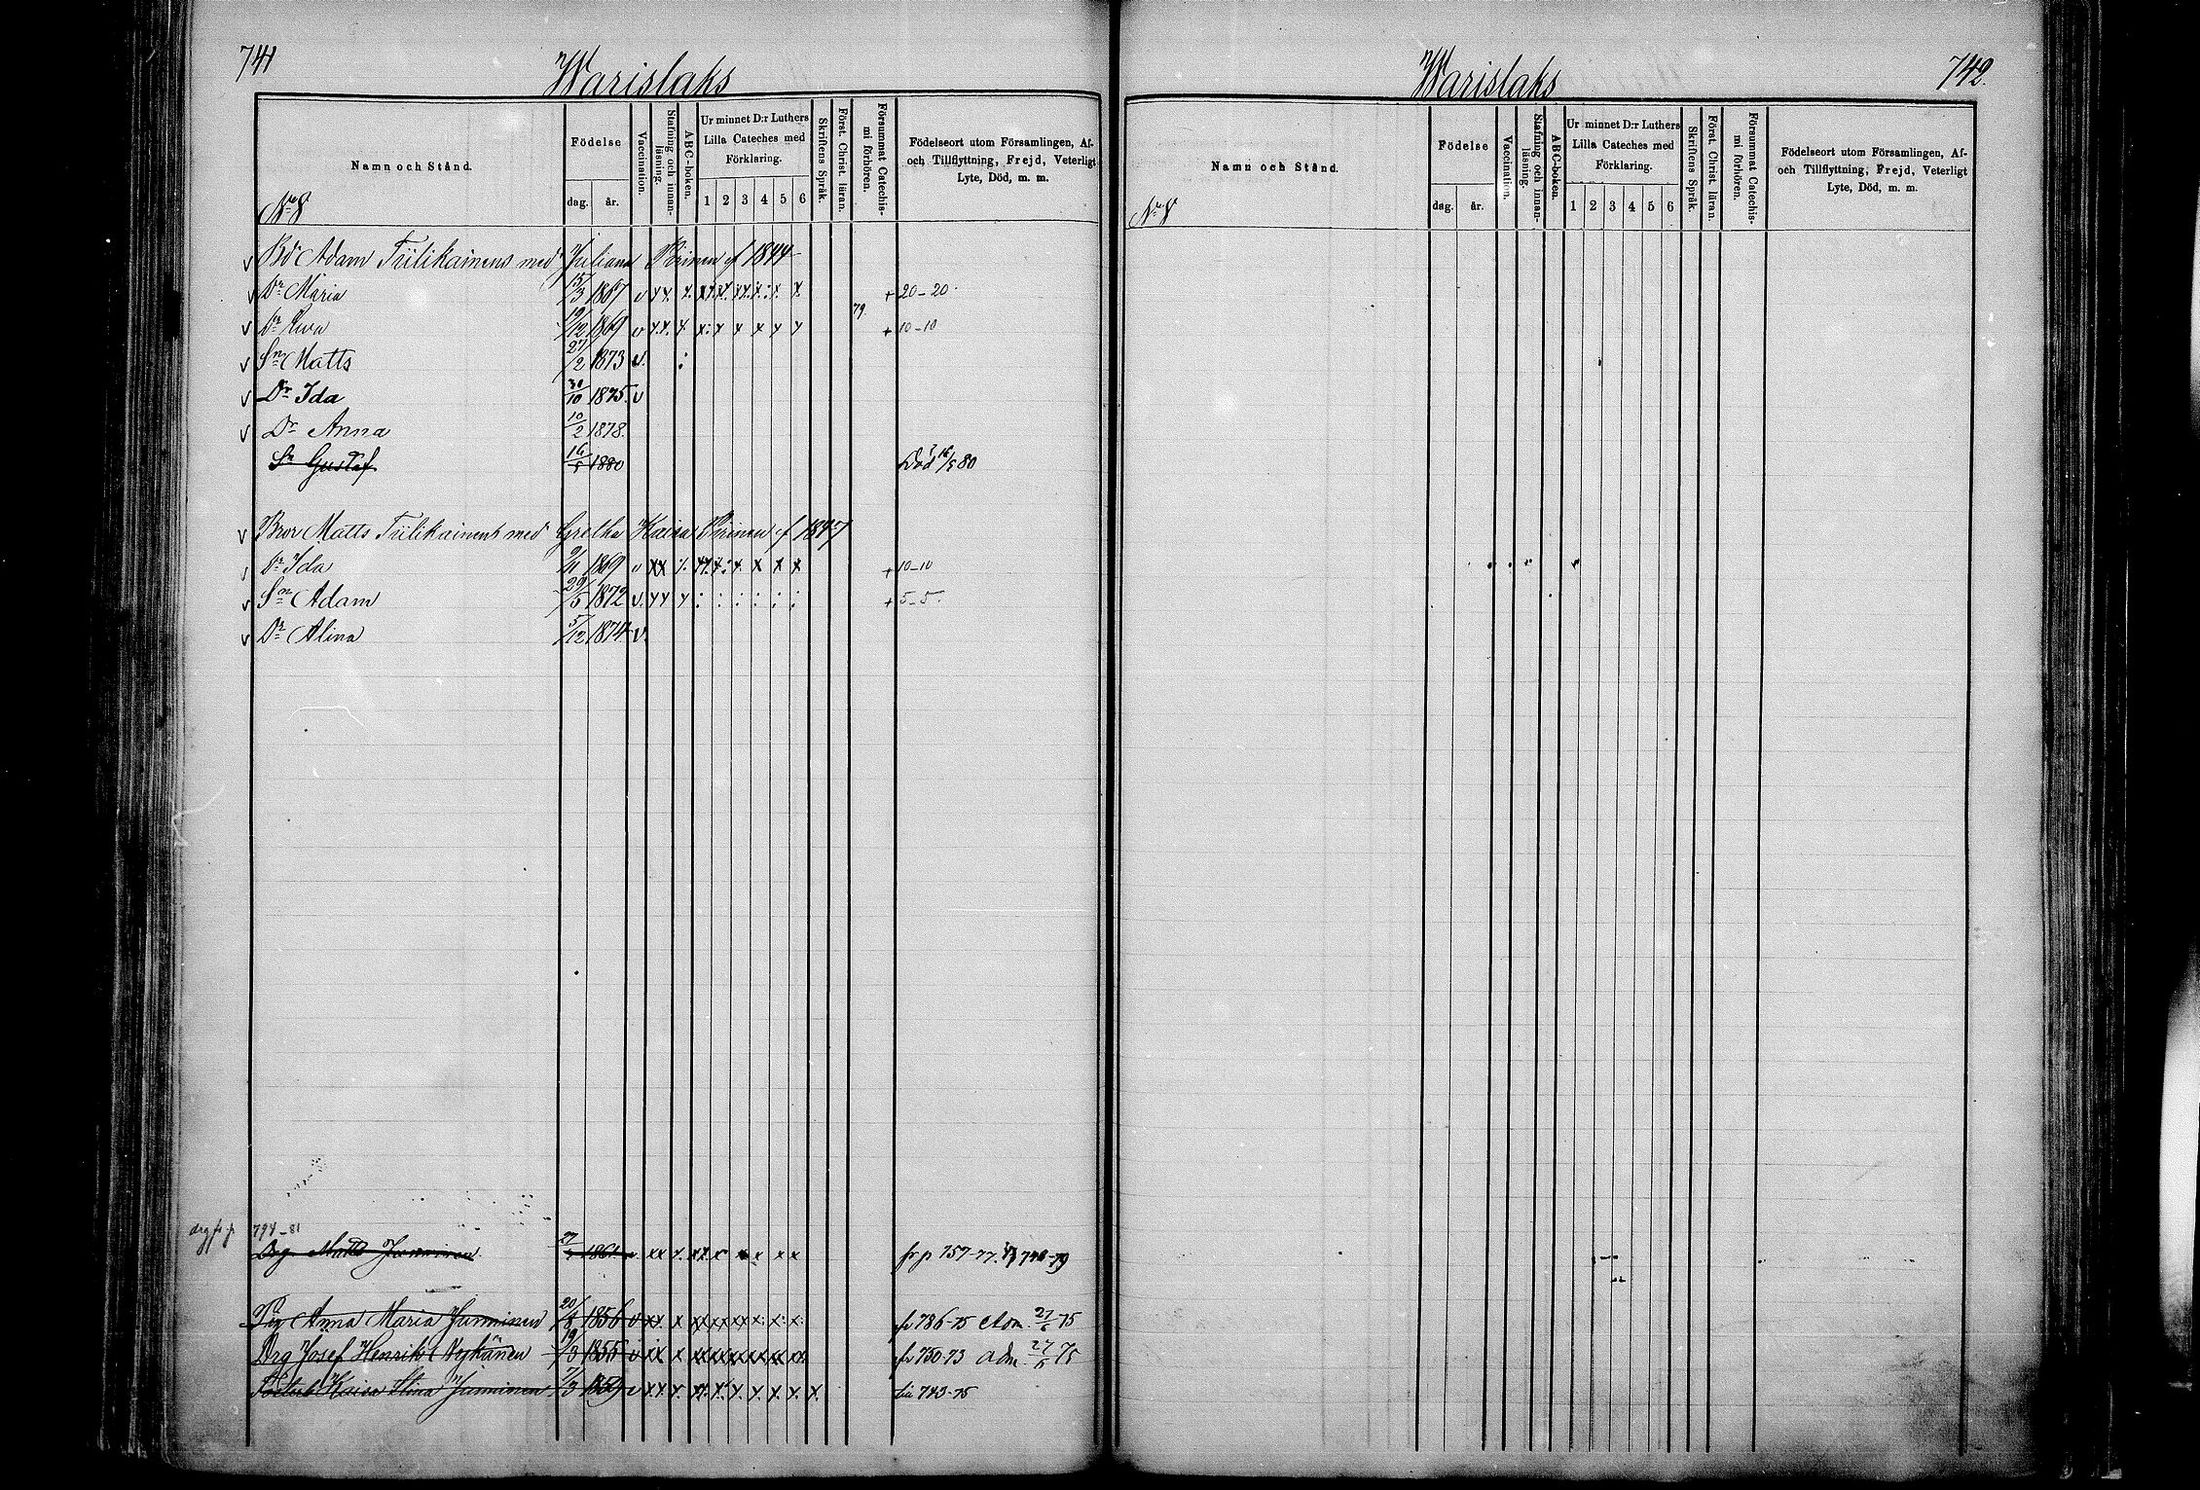 741
Warislaks
Namn och Stånd.
Födelse
dag. år.
Vaccination.
Stafning och innan-
läsning.
ABC-boken.
Ur minnet D:r Luthers
Lilla Cateches med
Förklaring.
1 2 3 4 5 6
Skriftens Språk.
Först. Christ. läran.
Försummat Catechis-
mi förhören.
Födelseort utom Församlingen, Af-
och Tillflyttning, Frejd, Veterligt
Lyte, Död, m. m.
No 8
v Adam Tiilikainens med Juliana 1844
v Dr Maria 15/3 1867 v + 20-20
79
v Dr Ewa 19/12 1869 v + 10-10
v Sn Matts 27/2 1873 v.
v Dr Ida 30/10 1875 v
v Dr Anna 10/2 1878.
Sn Gustaf 16/5 1880 Död 80
v Bror Matts Tiilikainens med Gretha Kaisa 1847
Dr Ida 9/11 1869 + 10-10
v Sn Adam 29/5 1872 v. + 5-5
v Dr Alina 5/12 1874 v.
794-81
Drg Matts Junninen 1861 fr p 757-77. 748-79
Anna Maria Junninen 20/8 1856 v fr 786-75 Adm. 75
Drg Josef Henrik Nykänen 19/3 1855 v fr 750-73 Adm. 75
Kaisa Stina Junninen 7/3 1859 v 743-75
742.
Warislaks
Namn och Stånd.
Födelse
dag. år.
Vaccination.
Stafning och innan-
läsning.
ABC-boken.
Ur minnet D:r Luthers
Lilla Cateches med
Förklaring.
1 2 3 4 5 6
Skriftens Språk.
Först. Christ. läran.
Försummat Catechis-
mi förhören.
Födelseort utom Församlingen, Af-
och Tillflyttning, Frejd, Veterligt
Lyte, Död, m. m.
No 8